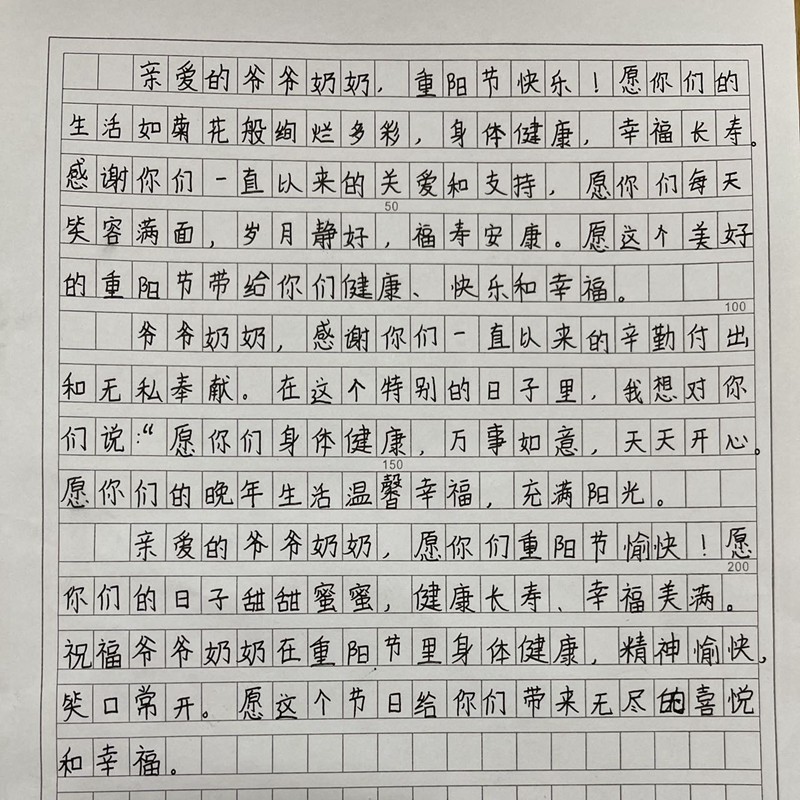 亲爱的爷爷奶奶，重阳节快乐！愿你们的
生活如菊花般绚烂多彩，身体健康，幸福长寿。
感谢你们一直以来的关爱和支持，愿你们每天
50
笑容满面，岁月静好，福寿安康。愿这个美好
的重阳节带给你们健康、快乐和幸福。
100
爷爷奶奶，感谢你们一直以来的辛勤付出
和无私奉献。在这个特别的日子里，我想对你
们说：“愿你们身体健康，万事如意，天天开心。
150
愿你们的晚年生活温馨幸福，充满阳光。
亲爱的爷爷奶奶，愿你们重阳节愉快！愿
200
你们的日子甜甜蜜蜜，健康长寿、幸福美满。
祝福爷爷奶奶在重阳节里身体健康，精神愉快，
笑口常开。愿这个节日给你们带来无尽的喜悦
和幸福。